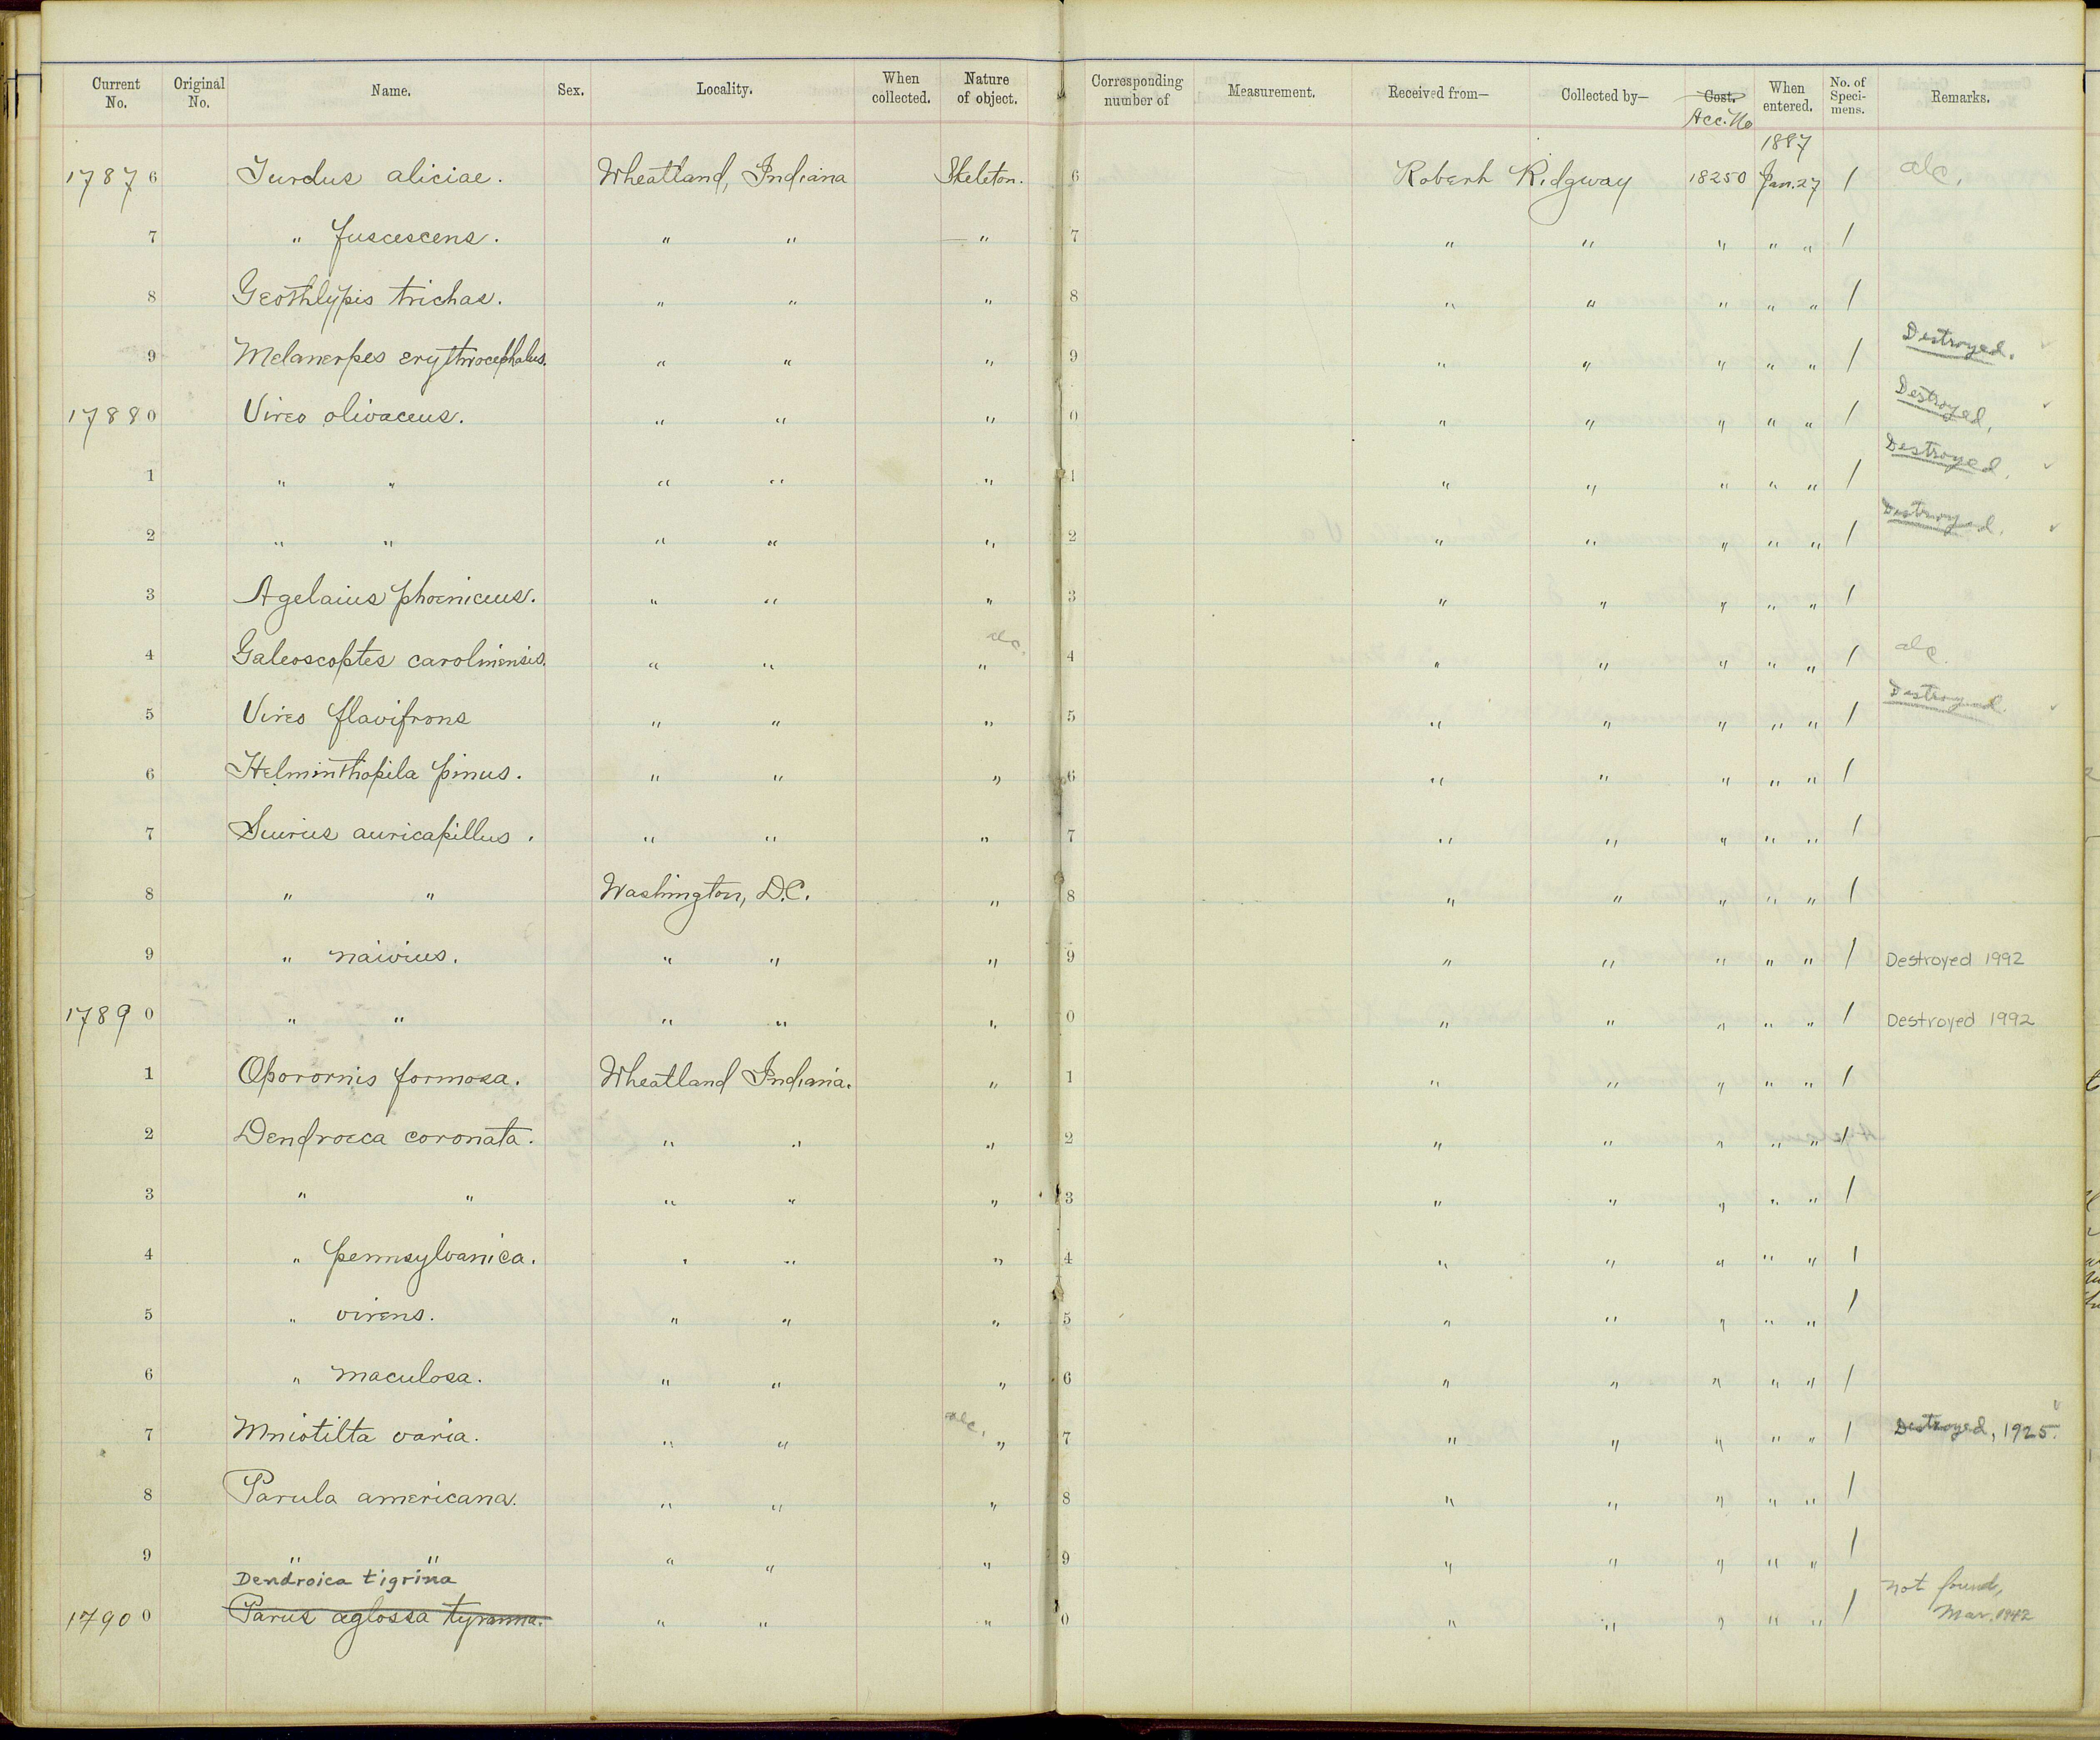 Current No. Original No. Name. Sex. Locality. When collected. Nature of object. Corresponding number of Measurement. Received from— Collected by— Cost. Acc. No When entered. No. of Specimens. Remarks.
1887
1787 6 Turdus aliciae. Wheatland, Indiana Skeleton. 6 Robert Ridgway 18250 Jan. 27 1 alc.
7 " fuscescens. " " " 7 " " " " " 1
8 Geothlypis trichas. " " " 8 " " " " " 1
9 Melanerpes erythrocephalus. " " " 9 " " " " " 1 Destroyed.
1788 0 Vireo olivaceus. " " " 0 " " " " " 1 Destroyed.
1 " " " " " 1 " " " " " 1 Destroyed.
2 " " " " " 2 " " " " " 1 Destroyed.
3 Agelaius phoeniceus. " " " 3 " " " " " 1
4 Galeoscoptes carolinensis. " " alc. " 4 " " " " " 1 alc.
5 Vireo flavifrons " " " 5 " " " " " 1 Destroyed.
6 Helminthopila pinus. " " " 6 " " " " " 1
7 Siurius auricapillus. " " " 7 " " " " " 1
8 " " Washington, D.C. " 8 " " " " " 1
9 " naivius. " " " 9 " " " " " 1 Destroyed 1992
1789 0 " " " " " 0 " " " " " 1 Destroyed 1992
1 Oporornis formosa. Wheatland Indiana. " 1 " " " " " 1
2 Dendroeca coronata. " " " 2 " " " " " 1
3 " " " " " 3 " " " " " 1
4 " pennsylvanica. " " " 4 " " " " " 1
5 " virens. " " " 5 " " " " " 1
6 " maculosa. " " " 6 " " " " " 1
7 Mniotilta varia. " " alc. " 7 " " " " " 1 Destroyed, 1925.
8 Parula americana. " " " 8 " " " " " 1
9 " " " " " 9 " " " " " 1
Dendroica tigrina
1790 0 Parus aeglossa tyranna. " " " 0 " " " " " 1 not found, Mar. 1942